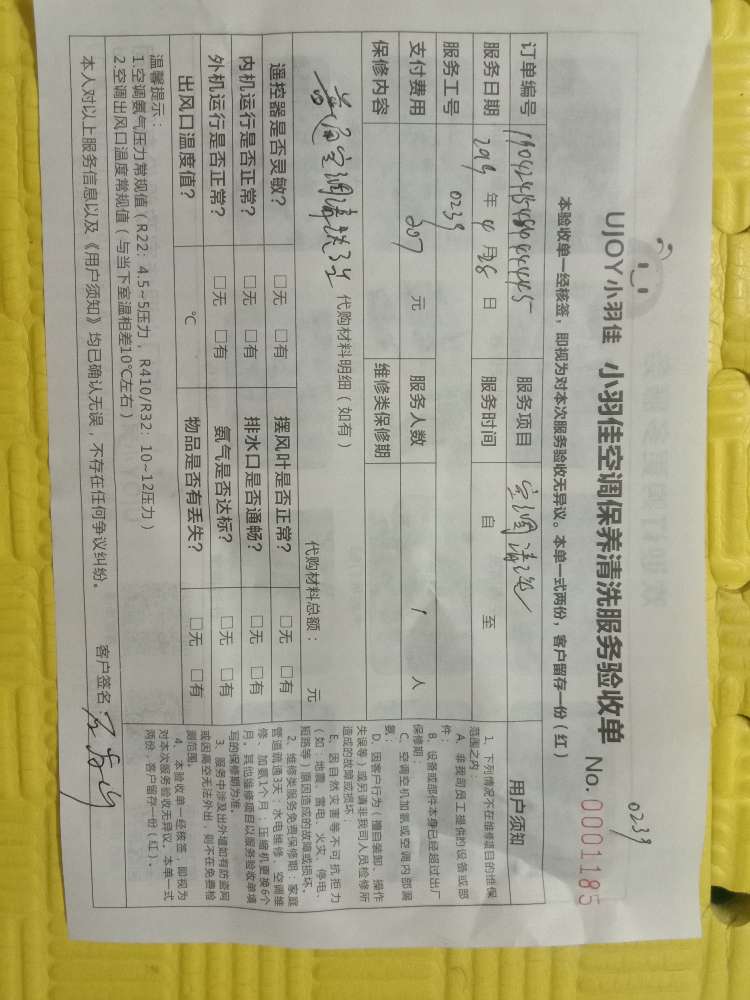 0239
UJOY小羽佳 小羽佳空调保养清洗服务验收单 No.0001185
本验收单一经核签，即视为对本次服务验收无异议。本单一式两份，客户留存一份（红）
订单编号 服务项目 空调清洗
服务日期 2019 年 4 月 28 日 服务时间 自 至
服务工号 0239
支付费用 207 元 服务人数 1 人
保修内容 维修类保修期
普通空调清洗3台 代购材料明细（如有） 代购材料总额： 元
遥控器是否灵敏？ □无 □有 摆风叶是否正常？ □无 □有
内机运行是否正常？ □无 □有 排水口是否通畅？ □无 □有
外机运行是否正常？ □无 □有 氨气是否达标？ □无 □有
出风口温度值？ ℃ 物品是否有丢失？ □无 □有
温馨提示：
1.空调氨气压力常规值（R22：4.5~5压力，R410/R32：10~12压力）
2.空调出风口温度常规值（与当下室温相差10℃左右）
本人对以上服务信息以及《用户须知》均已确认无误，不存在任何争议纠纷。 客户签名：
用户须知
1、下列情况不在维修项目的维保
范围之内：
A、非我司员工提供的设备或部
件；
B、设备或部件本身已经超过出厂
保修期；
C、空调外机加氨或空调内部漏
氨；
D、因客户行为（擅自装卸、操作
失误等）或另请非我司人员检修所
造成的故障或损坏；
E、因自然灾害等不可抗拒力
（如：地震、雷电、火灾、停电、
短路等）原因造成的故障或损坏。
2、维修类服务免费保修期：家庭
管道疏通3天；水电维修、空调维
修、加氨1个月；压缩机更换6个
月，其他维修项目以服务验收单填
写的保修期为准。
3、服务中涉及出外墙如有防盗网
或因高空无法外出，则不在免费检
测范围。
4、本验收单一经核签，即视为
对本次服务验收无异议。本单一式
两份，客户留存一份（红）。